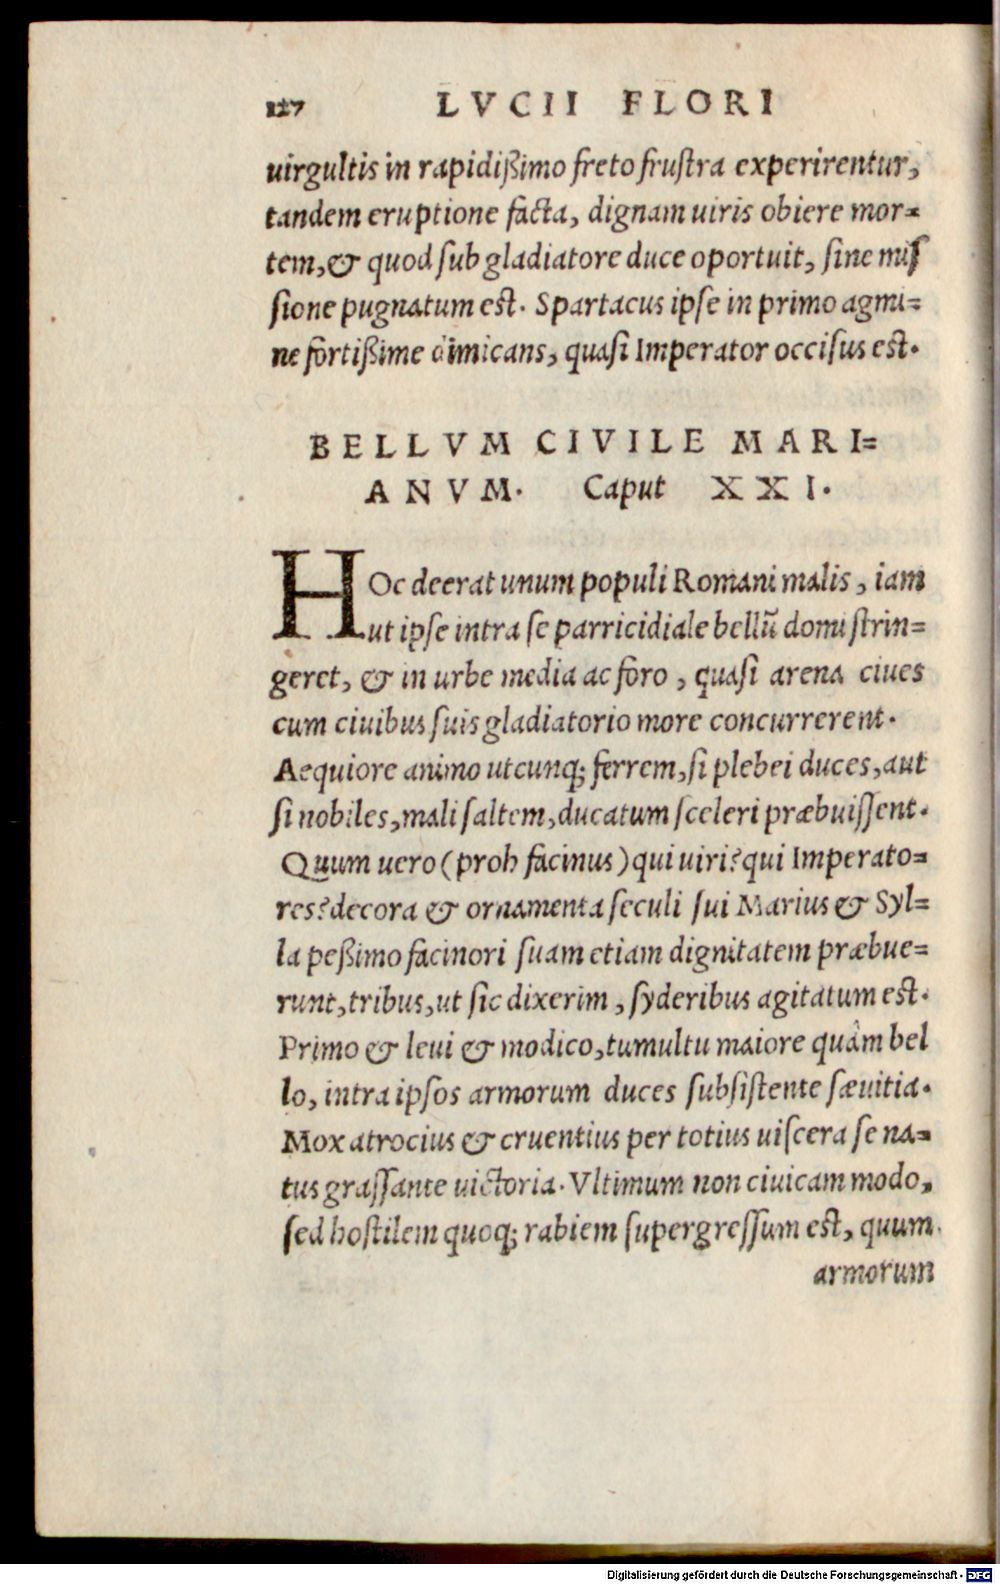 127 LVCII FLORI
uirgultis in rapidißimo freto frustra experirentur,
tandem eruptione facta, dignam uiris obiere mor=
tem, & quod sub gladiatore duce oportuit, sine mis
sione pugnatum est. Spartacus ipse in primo agmi=
ne fortißime dimicans, quasi Imperator occisus est.
BELLVM CIVILE MARI=
ANVM. Caput XXI.
HOc deerat unum populi Romani malis, iam
ut ipse intra se parricidiale bellũ domi strin=
geret, & in urbe media ac foro, quasi arena ciues
cum ciuibus suis gladiatorio more concurrerent.
Aequiore animo utcunq; ferrem, si plebei duces, aut
si nobiles, mali saltem, ducatum sceleri præbuissent.
Quum uero (proh facinus) qui uiri? qui Imperato=
res? decora & ornamenta seculi sui Marius & Syl=
la peßimo facinori suam etiam dignitatem præbue=
runt, tribus, ut sic dixerim, syderibus agitatum est.
Primo & leui & modico, tumultu maiore quàm bel
lo, intra ipsos armorum duces subsistente sæuitia.
Mox atrocius & cruentius per totius uiscera sena=
tus grassante uictoria. Vltimum non ciuicam modo,
sed hostilem quoq; rabiem supergressum est, quum
armorum
Digitalisierung gefördert durch die Deutsche Forschungsgemeinschaft - DFG